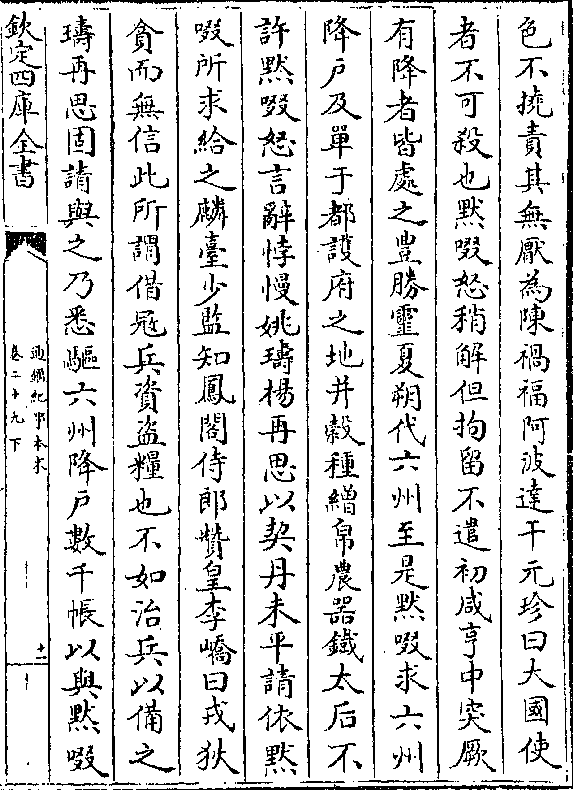 色不撓責其無厭為陳禍福阿波達干元珍曰大國使
者不可殺也默啜怒稍解但拘留不遣初咸亨中突厥
有降者皆處之豊勝靈夏朔代六州至是默啜求六州
降戶及單于都護府之地并榖種繒帛農器鐵太后不
許默啜怒言辭悖慢姚璹楊再思以契丹未平請依默
啜所求給之麟臺少監知鳳閣侍郎贊皇李嶠曰戎狄
貪而無信此所謂借寇兵資盗糧也不如治兵以備之
璹再思固請與之乃悉驅六州降戶數千帳以與默啜
欽定四庫全書
通鑑紀事本末
卷二十九下
十一